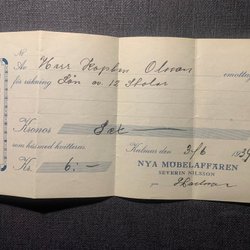 Nr
Av Herr Kapten Olsson emottagit
för räkning Lån av 12 Stolar
Kronor Sex
som härmed kvitteras.
Kalmar den 3/6 1934
Kr. 6:-
NYA MÖBELAFFÄREN
SEVERIN NILSSON